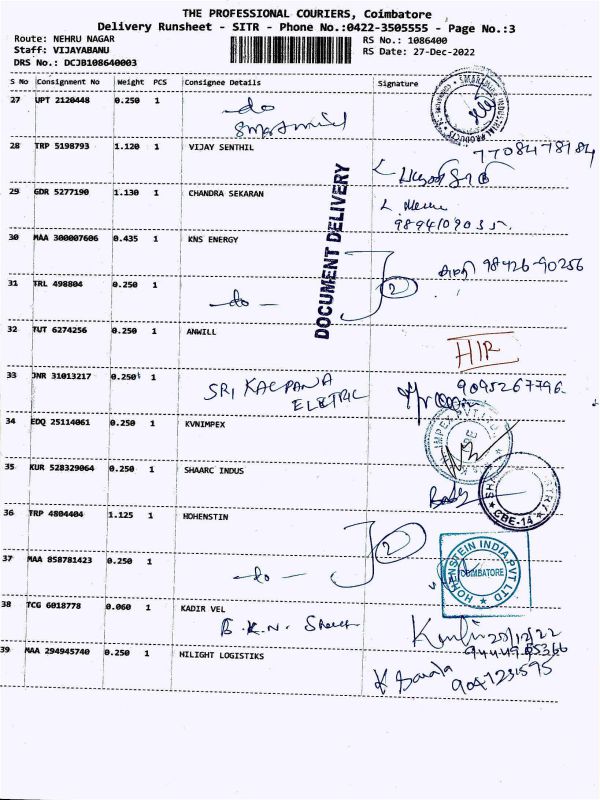 THE PROFESSIONAL COURIERS, Coimbatore
Delivery Runsheet - SITR - Phone No.:0422-3505555 - Page No.:3
Route: NEHRU NAGAR RS No.: 1086400
Staff: VIJAYABANU RS Date: 27-Dec-2022
DRS No.: DCJB108640003
S No Consignment No Weight PCS Consignee Details Signature
27 UPT 2120448 0.250 1 -do
28 TRP 5198793 1.120 1 VIJAY SENTHIL 7708478184
29 GDR 5277190 1.130 1 CHANDRA SEKARAN
9894109035
DOCUMENT DELIVERY
30 MAA 300007606 0.435 1 KNS ENERGY
98426-90256
31 TRL 498804 0.250 1 -do- 2
32 TUT 6274256 0.250 1 ANWILL
HIR
33 JNR 31013217 0.250 1 SRI KALPANA 9095267796
ELETRIC
34 EDQ 25114061 0.250 1 KVNIMPEX
IMPEX PVT LTD
35 KUR 528329064 0.250 1 SHAARC INDUS
CBE-14
36 TRP 4804404 1.125 1 HOHENSTIN
2
37 MAA 858781423 0.250 1 -do-
HOHENSTEIN INDIA PVT LTD
COIMBATORE
38 TCG 6018778 0.060 1 KADIR VEL
B.K.N. 20/12/22
39 MAA 294945740 0.250 1 NILIGHT LOGISTIKS
K Sarala
9047231595